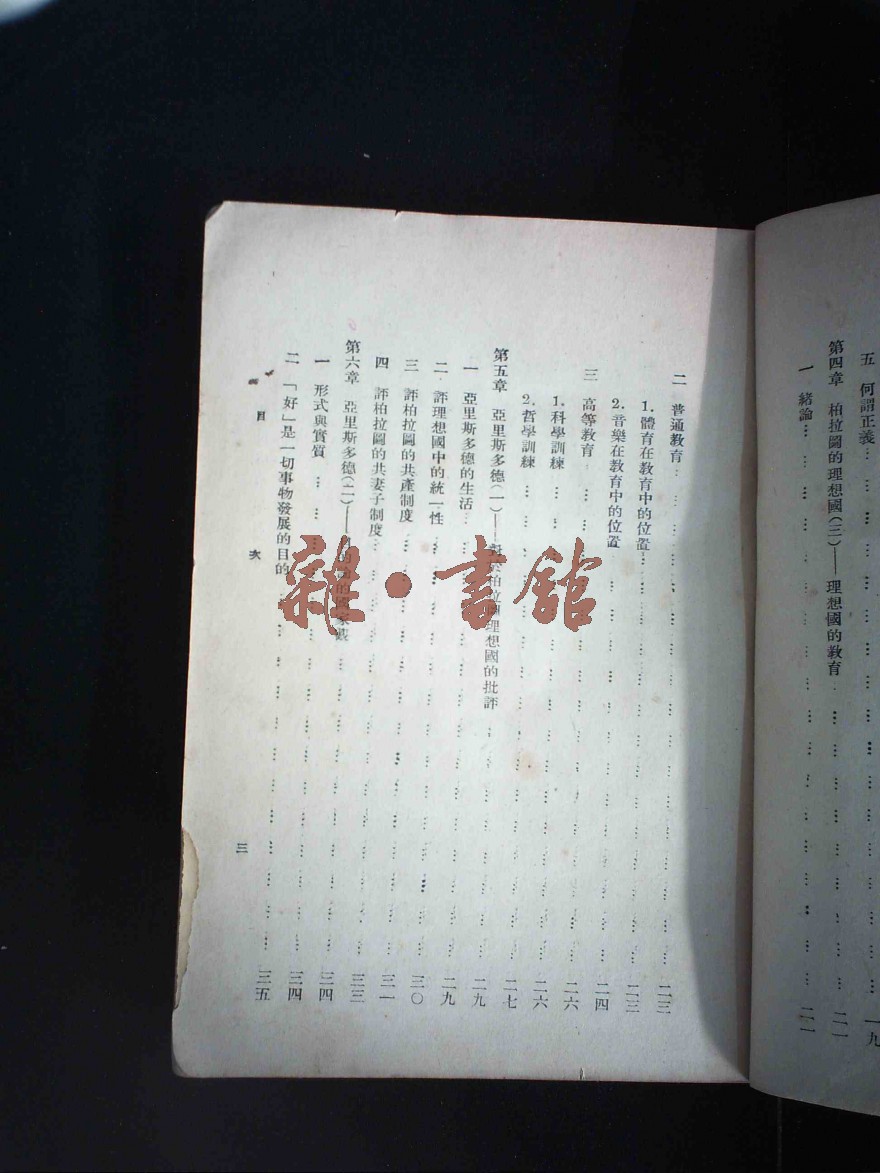 五 何謂正義 …… 一九
第四章 柏拉圖的理想國(三)——理想國的教育 …… 二一
一 緒論 …… 二一
二 普通教育 …… 二三
1. 體育在教育中的位置 …… 二三
2. 音樂在教育中的位置 …… 二四
三 高等教育 …… 二六
1. 科學訓練 …… 二六
2. 哲學訓練 …… 二七
第五章 亞里斯多德(一)——對於柏拉圖理想國的批評 …… 二九
一 亞里斯多德的生活 …… 二九
二 評理想國中的統一性 …… 三〇
三 評柏拉圖的共產制度 …… 三一
四 評柏拉圖的共妻子制度 …… 三三
第六章 亞里斯多德(二)——的國家觀 …… 三四
一 形式與實質 …… 三四
二 「好」是一切事物發展的目的 …… 三五
目次
三
雜·書館